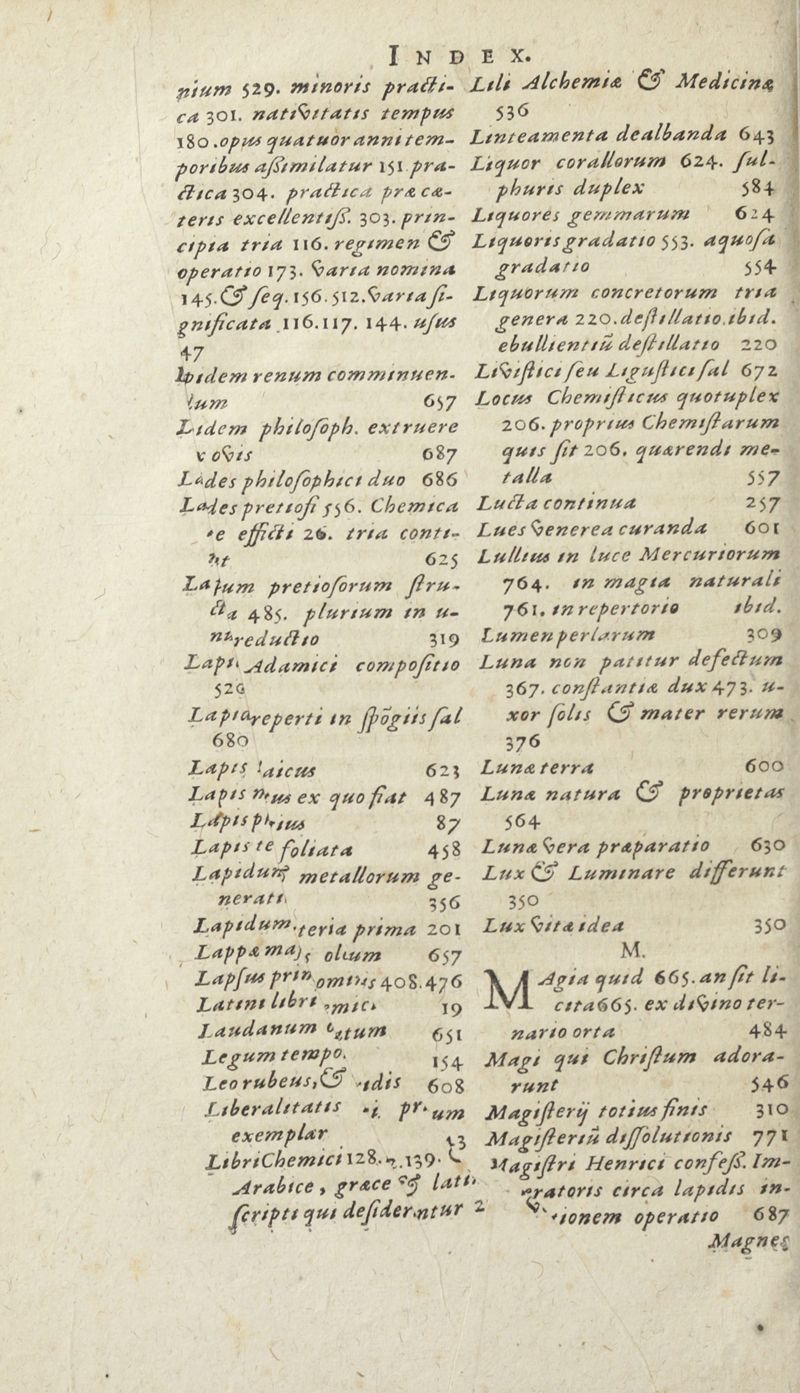 INDEX.
nium 529. minoris practi-
ca 301. nativitatis tempus
180. opus quatuor anni tem-
poribus aſſimilatur 151. pra-
ctica 304. practica præ cæ-
teris excellentiſſ. 303. prin-
cipia tria 116. regimen &
operatio 173. varia nomina
145. & ſeq. 156. 512. varia ſi-
gnificata 116. 117. 144. uſus
47
idem renum comminuen-
dum 657
dem philoſoph. extruere
ovis 687
des philoſophici duo 686
des pretioſi 556. Chemica
effícti 26. tria conti-
nt 625
pretioſorum ſtru-
cta 485. plurium in u-
reductio 319
Adamici compoſitio
520
reperti in ſpōgiis ſal
680
Lapis 623
Lapis ex quo fiat 487
Lapis 87
Lapis foliata 458
Lapidum metallorum ge-
nerati 356
Lapidum teria prima 201
Lappæ maj oleum 657
Lapſus 408. 476
Latini libri 19
Laudanum 651
Legum tempo. 154
Leo rubeus, & 608
Liberalitatis
exemplar
Libri Chemici 128. 139.
Arabice, græce & lati
ſcripti qui deſiderantur 2
Lili Alchemiæ & Medicinæ
536
Linteamenta dealbanda 643
Liquor corallorum 624. ſul-
phuris duplex 584
Liquores gemmarum 624
Liquoris gradatio 553. aquoſa
gradatio 554
Liquorum concretorum tria
genera 220. deſtillatio. ibid.
ebullientiū deſtillatio 220
Liviſtici ſeu Liguſtici ſal 672
Locus Chemiſticus quotuplex
206. proprius Chemiſtarum
quis ſit 206. quærendi me-
talla 557
Lucta continua 257
Lues Venerea curanda 601
Lullius in luce Mercuriorum
764. in magia naturali
761. in repertorio ibid.
Lumen perlarum 309
Luna non patitur defectum
367. conſtantiæ dux 473. u-
xor ſolis & mater rerum
376
Lunæ terra 600
Lunæ natura & proprietas
564
Luna vera præparatio 630
Lux & Luminare differunt
350
Lux vitæ idea 350
M.
MAgia quid 665. an ſit li-
cita 665. ex divino ter-
nario orta 484
Magi qui Chriſtum adora-
runt 546
Magiſterij totius finis 310
Magiſteriū diſſolutionis 771
Magiſtri Henrici confeſſ. Im-
eratoris circa lapidis in-
ionem operatio 687
Magnes